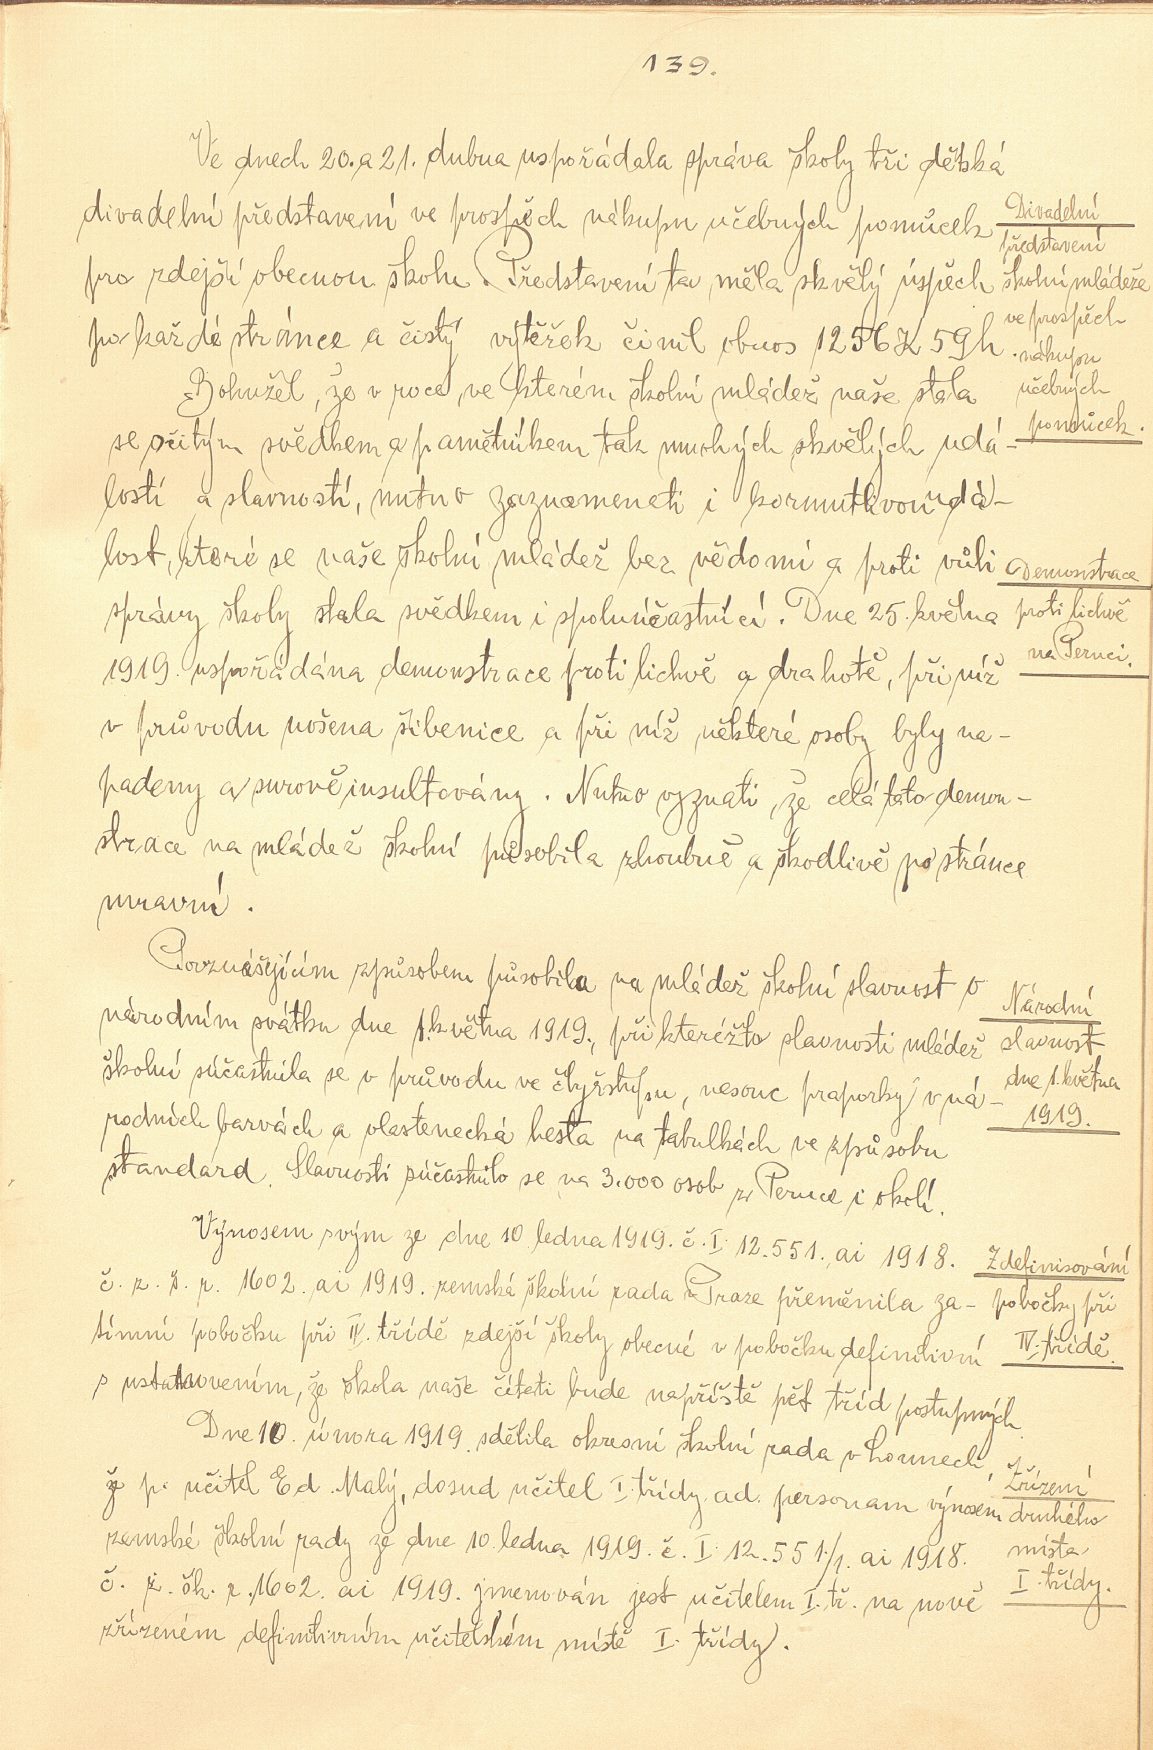 139.
Ve dnech 20. a 21. dubna uspořádala správa školy tři dětská
divadelní představení ve prospěch nákupu učebných pomůcek
pro zdejší obecnou školu. Představení ta měla skvělý úspěch
po každé stránce a čistý výtěžek činil obnos 1256 K 59 h.
Divadelní
představení
školní mládeže
ve prospěch
nákupu
učebných
pomůcek.
Bohužel, že v roce, ve kterém školní mládež naše stala
se očitým svědkem a pamětníkem tak mnohých skvělých udá-
lostí a slavností, nutno zaznamenati i kormutlivou udá-
lost, které se naše školní mládež bez vědomí a proti vůli
správy školy stala svědkem i spoluúčastnicí. Dne 25. května
1919. uspořádána demonstrace proti lichvě a drahotě, při níž
v průvodu nošena šibenice a při níž některé osoby byly na-
padeny a surově insultovány. Nutno vyznati, že celá tato demon-
strace na mládež školní působila zhoubně a škodlivě po stránce
mravní.
Demonstrace
proti lichvě
na Peruci.
Povznášejícím způsobem působila na mládež školní slavnost o
národním svátku dne 1. května 1919., při kteréžto slavnosti mládež
školní súčastnila se v průvodu ve čtyřstupu, nesouc praporky v ná-
rodních barvách a vlastenecká hesla na tabulkách ve způsobu
standard. Slavnosti súčastnilo se na 3.000 osob z Peruce i okolí.
Národní
slavnost
dne 1. května
1919.
Výnosem svým ze dne 10 ledna 1919. č. I. 12.551., ai 1918.
č. z. š. r. 1602. ai 1919. zemská školní rada v Praze přeměnila za-
tímní pobočku při IV. třídě zdejší školy obecné v pobočku definitivní
s ustanovením, že škola naše čítati bude napříště pět tříd postupných.
Zdefinisování
pobočky při
IV. třídě.
Dne 10. února 1919. sdělila okresní školní rada v Lounech,
že p. učitel Ed. Malý, dosud učitel I. třídy ad. personam výnosem
zemské školní rady ze dne 10 ledna 1919. č. I. 12.551./1. ai 1918.
č. z. šk. r. 1602. ai 1919. jmenován jest učitelem I. tř. na nově
zřízeném definitivním učitelském místě I. třídy.
Zřízení
druhého
místa
I. třídy.